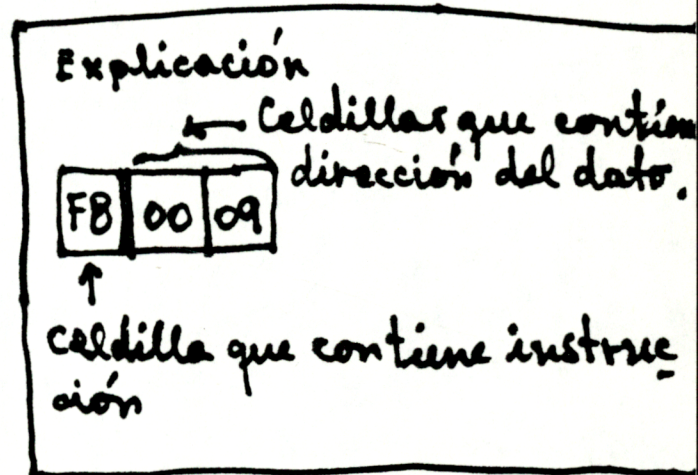 Explicación
Celdillas que contien
dirección del dato.
F8 00 09
celdilla que contiene instruc
ción